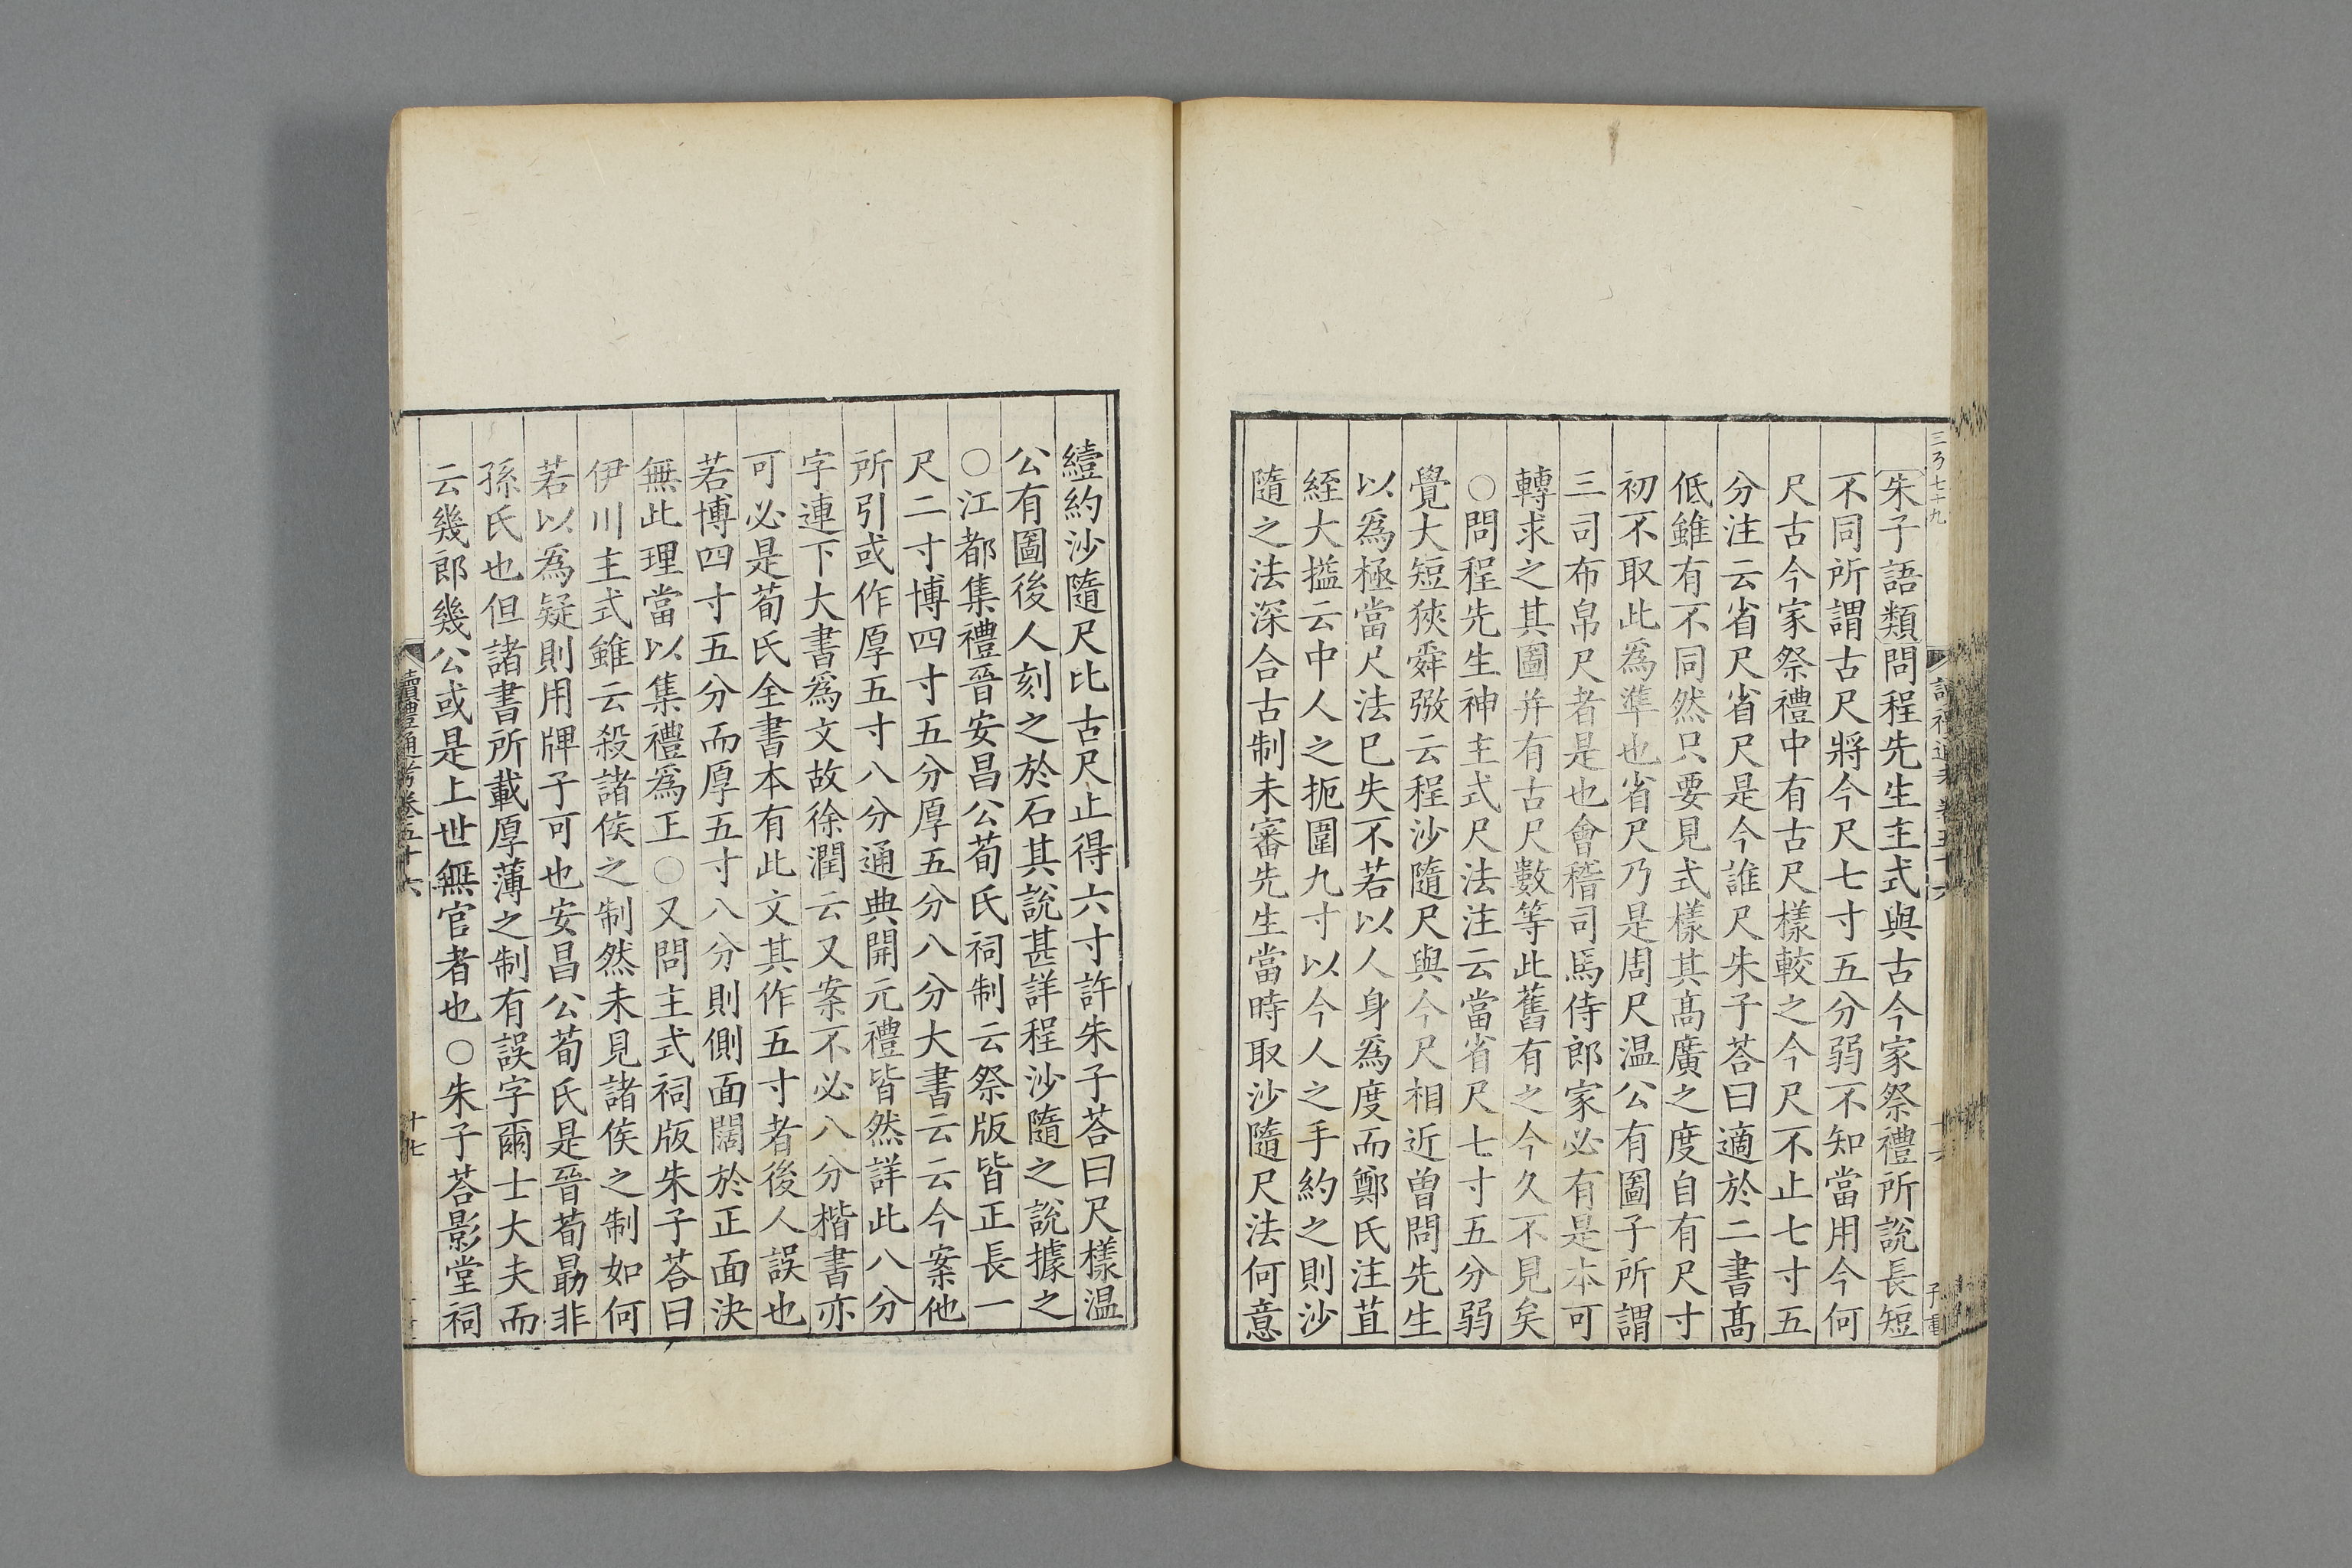 朱子語類問程先生主式與古今家祭禮所說長短
不同所謂古尺將今尺七寸五分弱不知當用今何
尺古今家祭禮中有古尺樣較之今尺不止七寸五
分注云省尺省尺是今誰尺朱子荅曰適於二書髙
低雖有不同然只要見式樣其髙廣之度自有尺寸
初不取此爲準也省尺乃是周尺温公有圖子所謂
三司布帛尺者是也會稽司馬侍郎家必有是本可
轉求之其圖并有古尺數等此舊有之今久不見矣
○問程先生神主式尺法注云當省尺七寸五分弱
覺大短狹舜弼云程沙隨尺與今尺相近曽問先生
以爲極當尺法已失不若以人身爲度而鄭氏注苴
絰大搤云中人之扼圍九寸以今人之手約之則沙
隨之法深合古制未審先生當時取沙隨尺法何意
續約沙隨尺比古尺止得六寸許朱子荅曰尺樣温
公有圖後人刻之於石其說甚詳程沙隨之說據之
○江都集禮晉安昌公荀氏祠制云祭版皆正長一
尺二寸博四寸五分厚五分八分大書云云今案他
所引或作厚五寸八分通典開元禮皆然詳此八分
字連下大書爲文故徐潤云又案不必八分楷書亦
可必是荀氏全書本有此文其作五寸者後人誤也
若博四寸五分而厚五寸八分則側面闊於正面決
無此理當以集禮爲正○又問主式祠版朱子荅曰
伊川主式雖云殺諸侯之制然未見諸侯之制如何
若以爲疑則用牌子可也安昌公荀氏是晉荀勗非
孫氏也但諸書所載厚薄之制有誤字爾士大夫而
云幾郎幾公或是上世無官者也○朱子荅影堂祠
讀禮通考卷五十六
十七